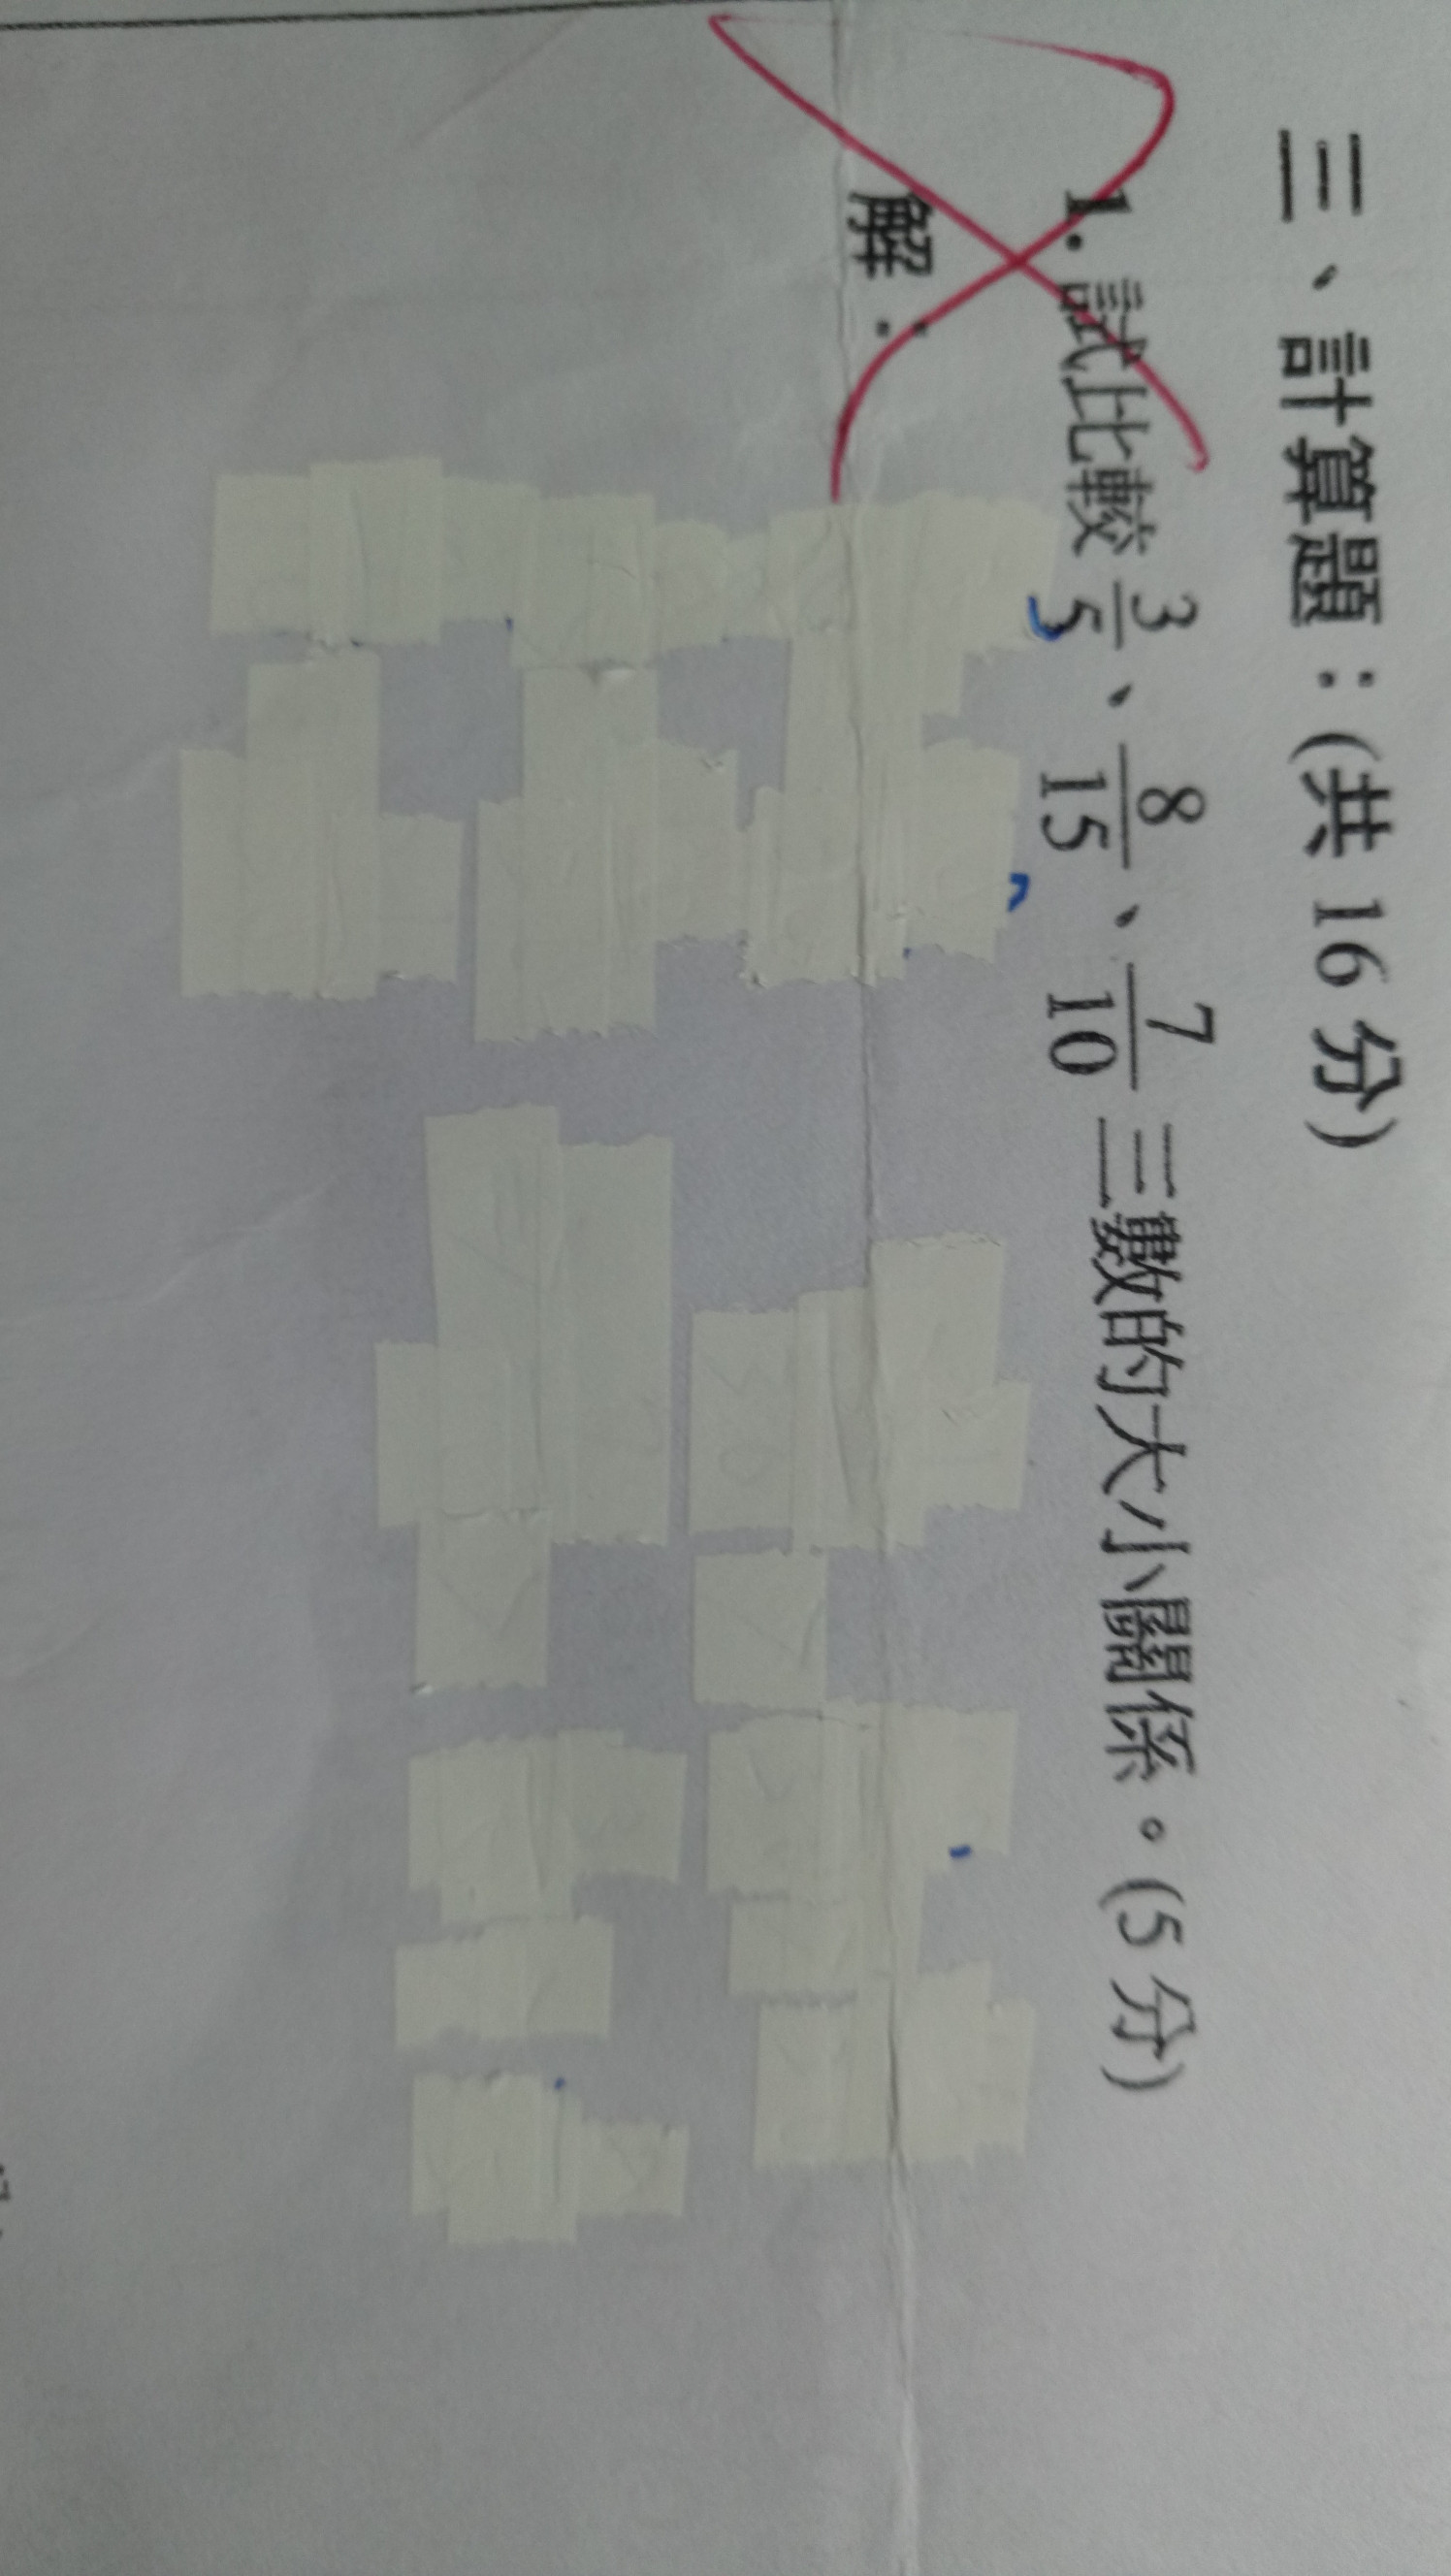 三、計算題：(共 16 分)
1. 試比較 3/5、8/15、7/10 三數的大小關係。(5 分)
解：